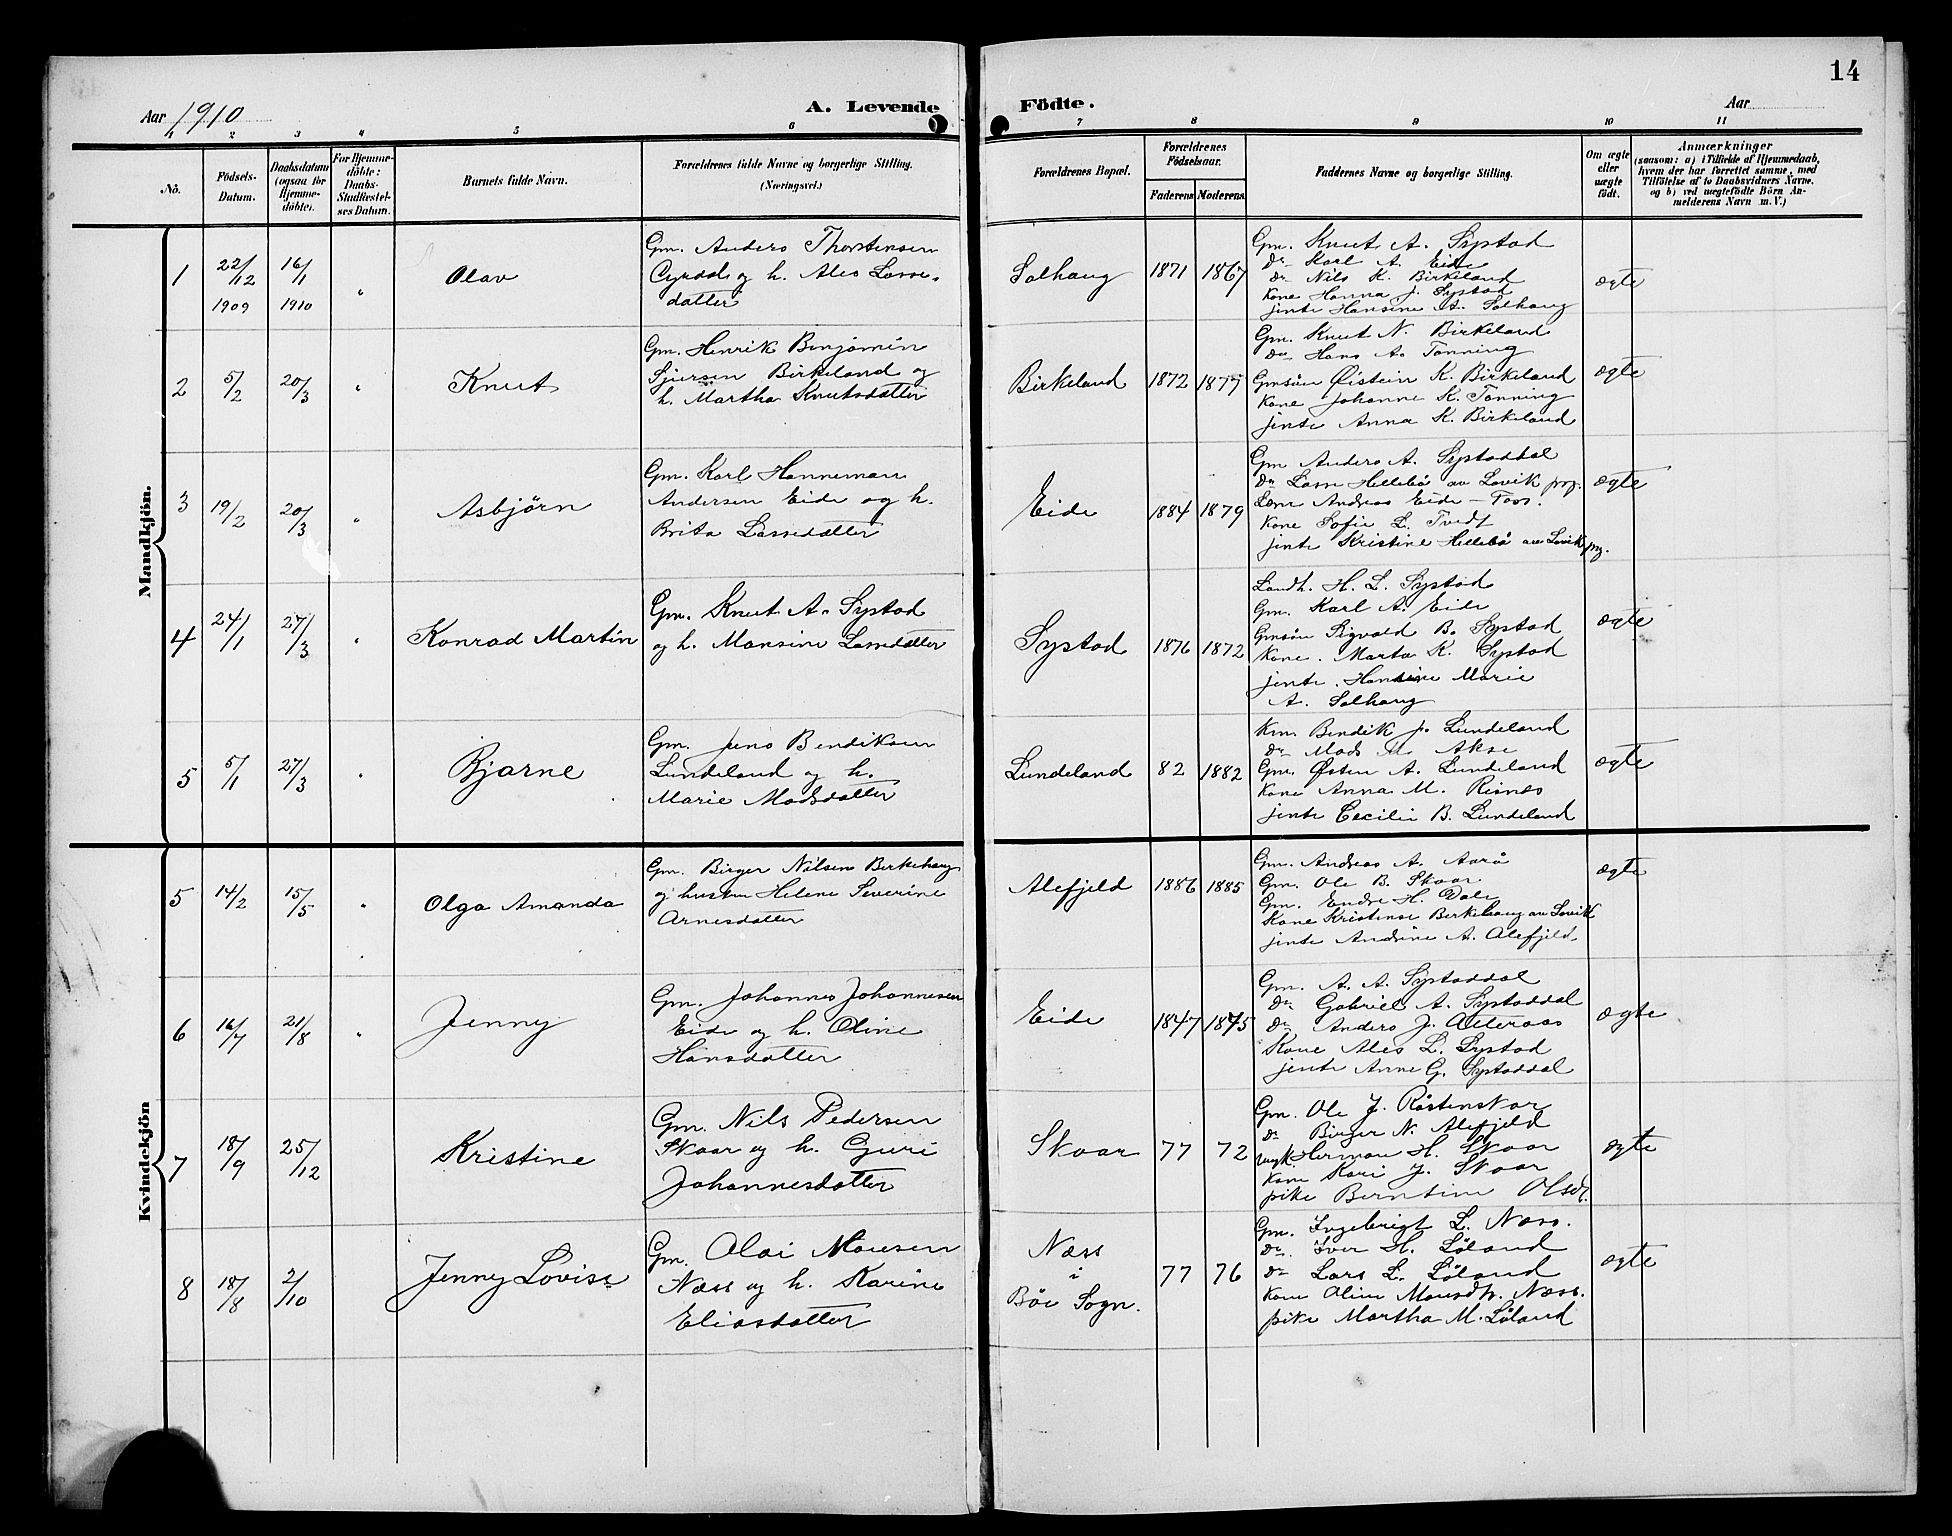 14
Aar 1910
A. Levende Födte.
Aar
1 2 3 4 5 6 7 8 9 10 11
No.
Födsels-
Datum.
Daabsdatum
(ogsaa for
Hjemme-
döbte).
For Hjemme-
döbte:
Daabs-
Stadfæstel-
ses Datum.
Barnets fulde Navn.
Forældrenes fulde Navne og borgerlige Stilling.
(Næringsvei.)
Forældrenes Bopæl.
Forældrenes
Födselsaar.
Faderens Moderens
Faddernes Navne og borgerlige Stilling.
Om ægte
eller
uægte
födt.
Anmærkninger
(saasom: a) i Tilfælde af Hjemmedaab,
hvem der har forrettet samme, med
Tilföielse af to Daabsvidners Navne,
og b) ved uægtefödte Börn An-
melderens Navn m. V.)
Mandkjön.
1
22/12
1909
16/1
1910
"
Olav
Gm. Anders Thorstensen
og h. Ales Lasse-
datter
Solhaug
1871
1867
Gm. Knut A. Systad
Do Karl A. Eide
Do Nils K. Birkeland
Kone Hanna J. Systad
jente Hansine A. Solhaug
ægte
2
5/2
20/3
"
Knut
Gm. Henrik Benjamin
Sjursen Birkeland og
h. Martha Knutsdatter
Birkeland
1872
1877
Gm. Knut N. Birkeland
Do Hans A. Tonning
Gmsön Øistein K. Birkeland
Kone Johanne K. Tonning
jente Anna K. Birkeland
ægte
3
19/2
20/3
"
Asbjörn
Gm. Karl Hanneman
Andersen Eide og h.
Brita Lassedatter
Eide
1884
1879
Gm Anders A. Systaddal
Do Lasse Hellebö av Lavik prg.
Andreas Eide - Foss.
Kone Sofie L. Tvedt
jente Kristine Hellebö av Lavik prg.
ægte
4
24/1
27/3
"
Konrad Martin
Gm. Knut A. Systad
og h. Mansine Lassedatter
Systad
1876
1872
Landh. H. L. Systad
Gm. Karl A. Eide
Gmsön Sigvald B. Systad
Kone. Marta K. Systad
jente. Hansine Marie
A. Solhaug
ægte
5
5/1
27/3
"
Bjarne
Gm. Jens Bendiksen
Lundeland og h.
Marie Madsdatter
Lundeland
82
1882
Km. Bendik J. Lundeland
Do Mads M. Akse
Gm. Østen A. Lundeland
Kone Anna M. Risnes
jente Cecilie B. Lundeland
ægte
Kvindekjön
5
14/2
15/5
"
Olga Amanda
Gm. Birger Nilsen Birkehaug
og hustru Helene Severine
Arnesdatter
Alefjeld
1886
1885
Gm. Andreas A. Aarö
Gm. Ole B. Skaar
Gm. Endre H. Dale
Kone Kristense Birkehaug av Lavik
jente Andrine A. Alefjeld.
ægte
6
16/7
21/8
"
Jenny
Gm. Johannes Johannesen
Eide og h. Oline
Hansdatter
Eide
1847
1875
Gm. A. A. Systaddal
Do Gabriel A. Systaddal
Do Anders J. Alteraas
Kone Ales L. Systad
jente Anne G. Systaddal
ægte
7
18/9
25/12
Kristine
Gm. Nils Pedersen
Skaar og h. Guri
Johannesdatter
Skaar
77
72
Gm. Ole J. Röstenskar
Do Birger N. Alefjeld
ungk. Herman H. Skaar
Kone Kari J. Skaar
pike Berntine Olsdt.
ægte
8
18/8
2/10
Jenny Lovise
Gm. Olai Monsen
Næss og h. Karine
Eliasdatter
Næss
i
Böe Sogn.
77
76
Gm. Ingebrigt L. Næss.
Do. Iver H. Löland
Do Lars L. Löland
Kone Oline Monsdtr. Næss.
pike Martha M. Löland
ægte